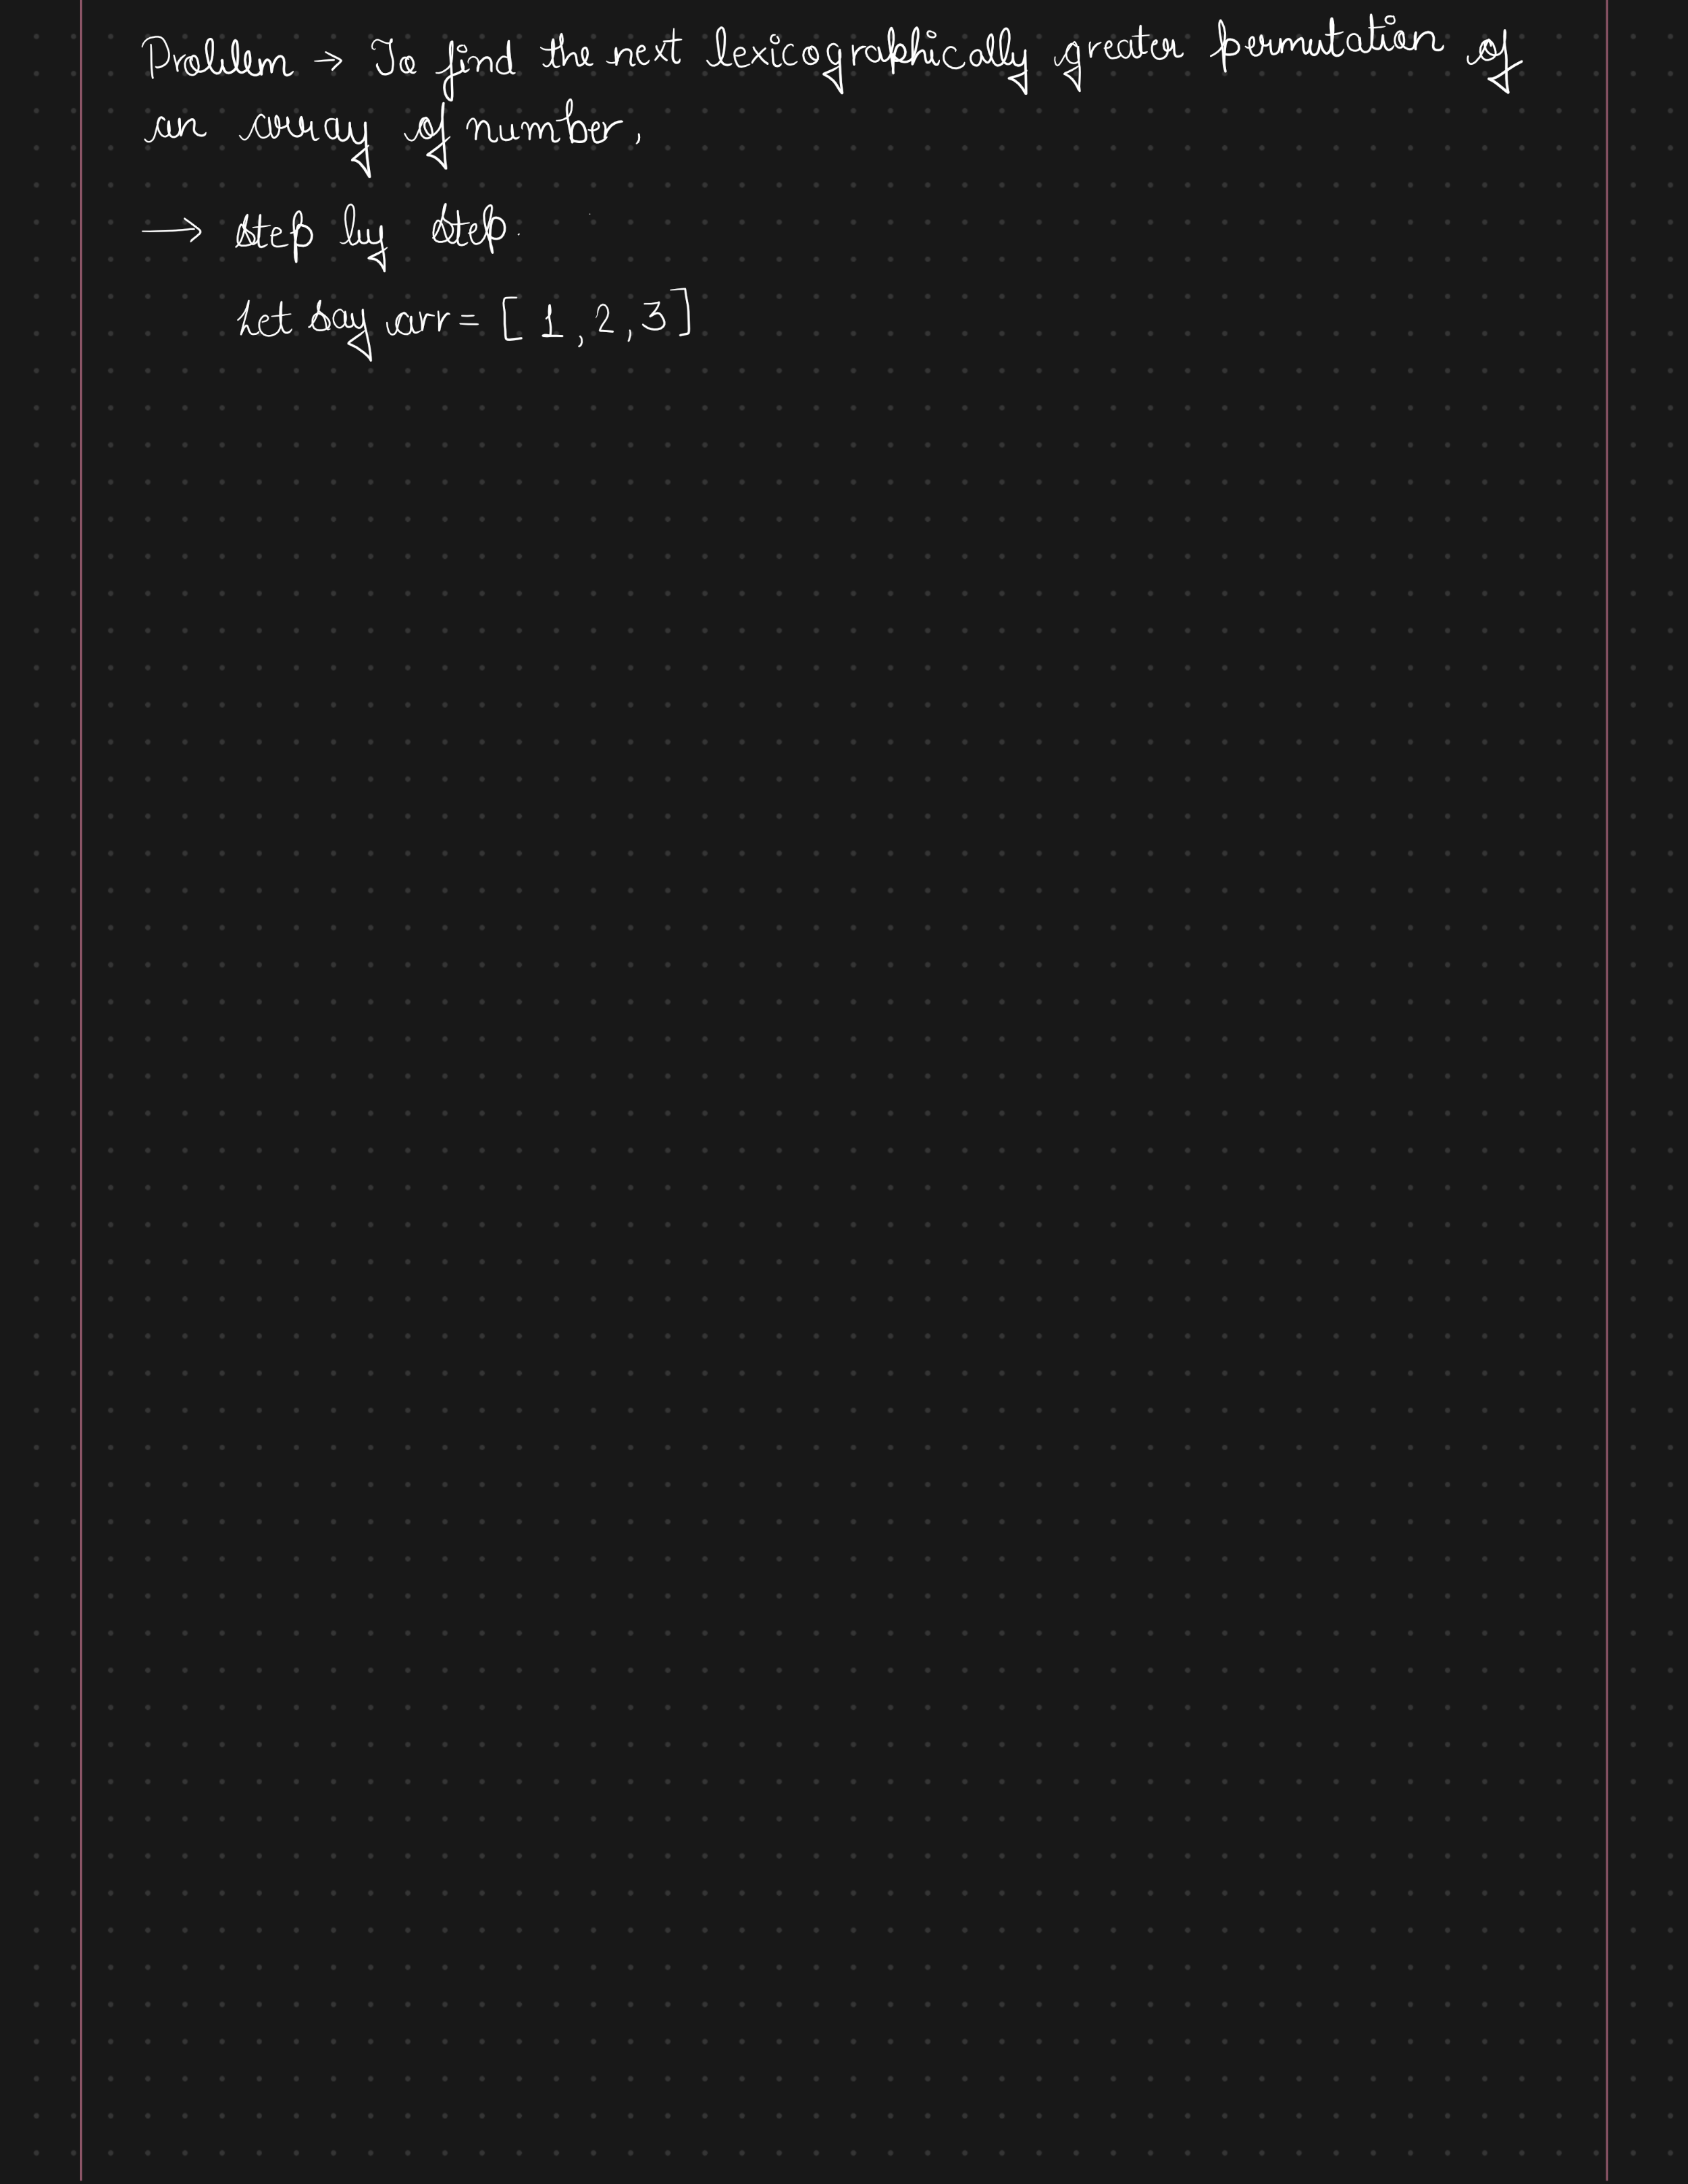 Problem → To find the next lexicographically greater permutation of
an array of number,
→ step by step.
Let say arr = [ 1, 2, 3 ]